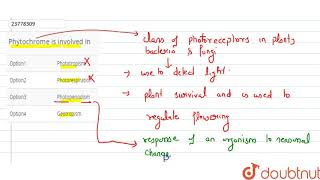 23778309
Phytochrome is involved in
Option1 Phototropism X
Option2 Photorespiration X
Option3 Photoperiodism
Option4 Geotropism
class of photoreceptors in plants,
bacteria & fungi
→ use to detect light.
→ plant survival and is used to
regulate flowering
→ response of an organism to seasonal
change
doubtnut